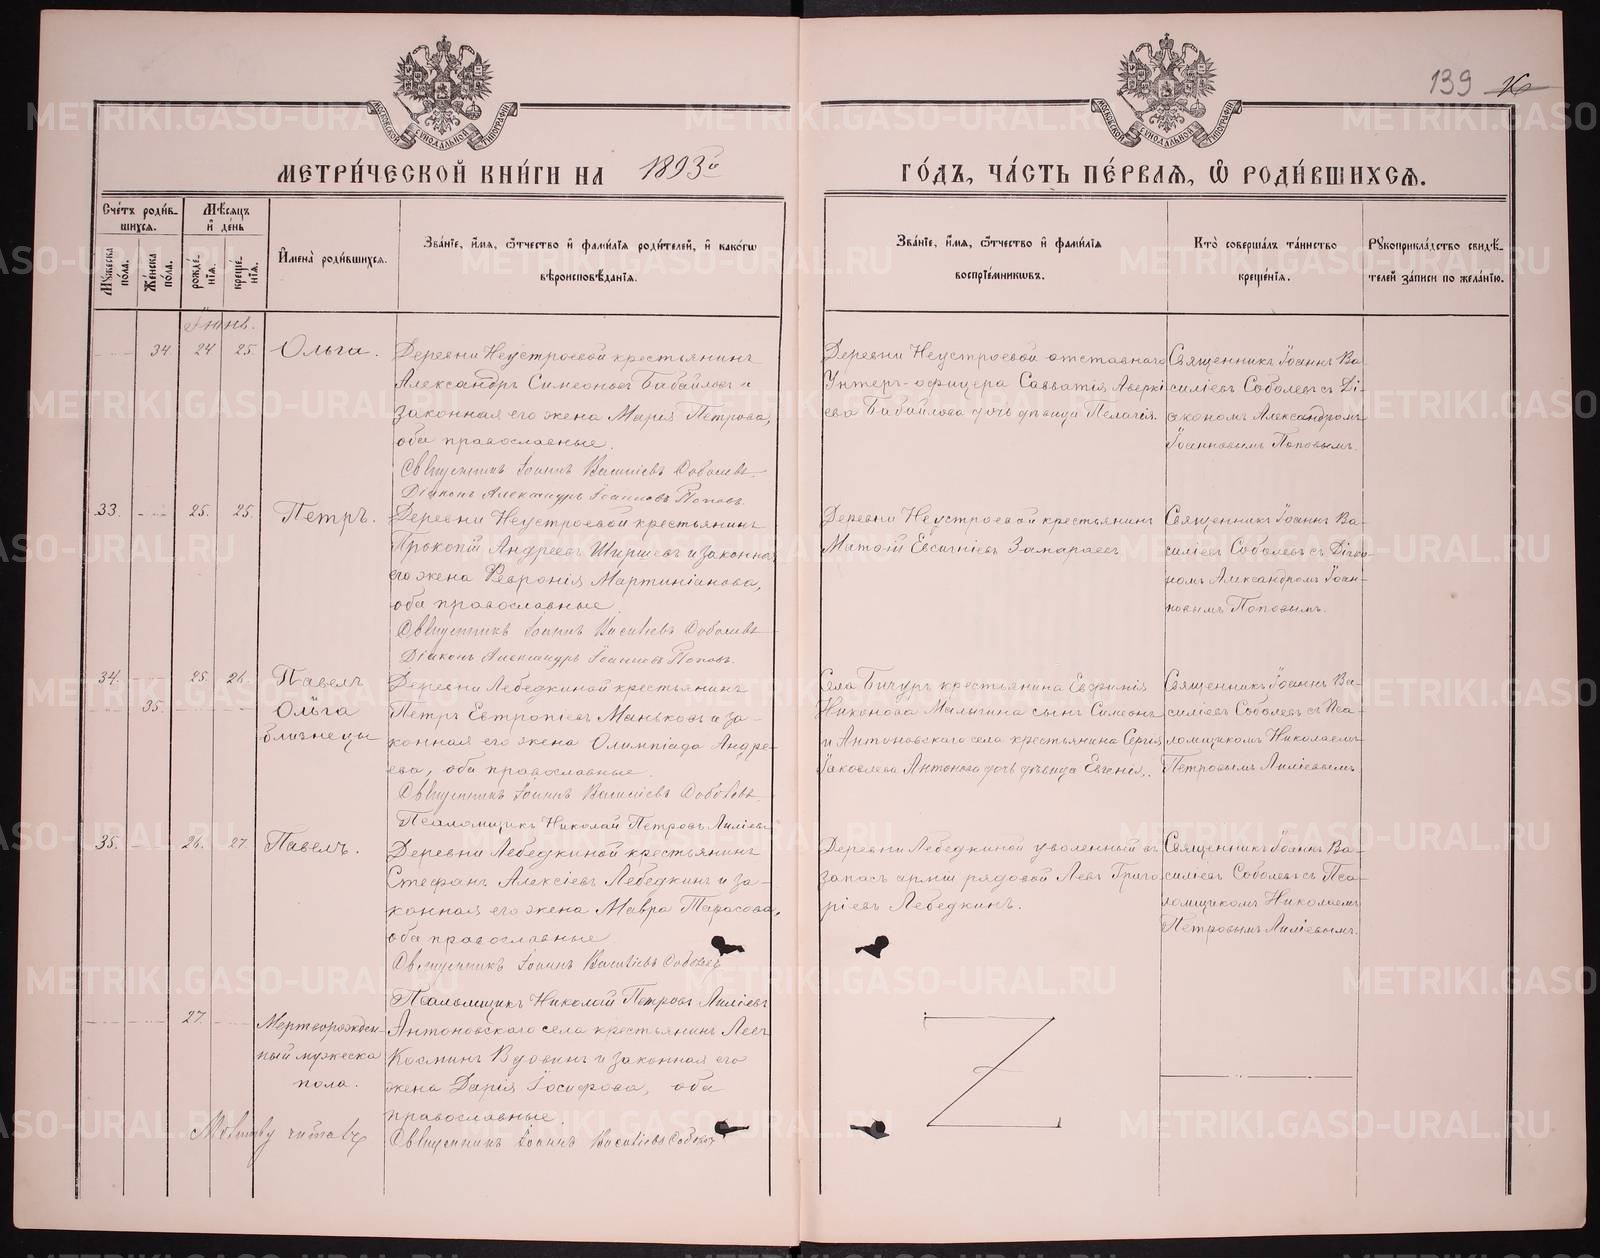 139
МОСКОВСКОЙ СУНОДАЛЬНОЙ ТИПОГРАФІИ
МОСКОВСКОЙ СУНОДАЛЬНОЙ ТИПОГРАФІИ
МЕТРИ́ЧЕСКОЙ КНИ́ГИ НА 1893й
ГО́ДЪ, ЧА́СТЬ ПЕ́РВАѦ, Ѽ РОДИ́ВШИХСѦ.
Сче́тъ роди́в-
шихсѧ.
Мꙋ́жеска пола.
Же́нска по́ла.
Мѣ́сѧцъ
и҆ де́нь
рожде́-
нїѧ.
креще́-
нїѧ.
И҆мена̀ роди́вшихсѧ.
Зва́нїе, и҆́мѧ, ѻ҆́тчество и҆ фами́лїѧ роди́телей, и҆ како́гѡ
вѣроисповѣ́данїѧ.
Зва́нїе, и҆́мѧ, ѻ҆́тчество и҆ фами́лїѧ
воспрїе́мникѡвъ.
Кто̀ соверша́лъ та́инство
креще́нїѧ.
Рꙋкоприкла́дство свидѣ́-
телей за́писи по жела́нїю.
Іюнь.
34 24 25. Ольга.
Деревни Неустроевой крестьянинъ
Александръ Симеоновъ Бабайловъ и
законная его жена Марія Петрова,
оба православные.
Священникъ Іоаннъ Василіевъ Соболевъ
Діаконъ Александръ Іоанновъ Поповъ
Деревни Неустроевой отставнаго
Унтеръ-офицера Савватія Аверкі
ева Бабайлова дочь дѣвица Пелагія.
Священникъ Іоаннъ Ва-
силіевъ Соболевъ съ Ді-
акономъ Александромъ
Іоанновымъ Поповымъ.
33. 25. 25. Петръ.
Деревни Неустроевой крестьянинъ
Прокопій Андреевъ Ширшевъ и законная
его жена Февронія Мартиніанова,
оба православные.
Священникъ Іоаннъ Василіевъ Соболевъ
Діаконъ Александръ Іоанновъ Поповъ.
Деревни Неустроевой крестьянинъ
Матѳій Евсигніевъ Замараевъ
Священникъ Іоаннъ Ва-
силіевъ Соболевъ съ Діако-
номъ Александромъ Іоан-
новымъ Поповымъ.
34. 25. 26. Павелъ
35. Ольга
близнецы
Деревни Лебедкиной крестьянинъ
Петръ Евтропіевъ Маньковъ и за-
конная его жена Олимпіада Андре-
ева, оба православные.
Священникъ Іоаннъ Василіевъ Соболевъ
Псаломщикъ Николай Петровъ Лиліевъ
Села Бичуръ крестьянина Евфимія
Никонова Малыгина сынъ Симеонъ
и Антоновскаго села крестьянина Сергія
Іаковлева Антонова дочь дѣвица Евгенія.
Священникъ Іоаннъ Ва-
силіевъ Соболевъ съ Пса-
ломщикомъ Николаемъ
Петровымъ Лиліевымъ
35. 26. 27. Павелъ.
Деревни Лебедкиной крестьянинъ
Стефанъ Алексіевъ Лебедкинъ и за-
конная его жена Мавра Тарасова,
оба православные
Священникъ Іоаннъ Василіевъ Соболевъ
Псаломщикъ Николай Петровъ Лиліевъ
Деревни Лебедкиной уволенный въ
запасъ арміи рядовой Левъ Григо
ріевъ Лебедкинъ.
Священникъ Іоаннъ Ва-
силіевъ Соболевъ съ Пса-
ломщикомъ Николаемъ
Петровымъ Лиліевымъ.
27. Мертворожден-
ный мужеска
пола.
Антоновскаго села крестьянинъ Левъ
Косминъ Вдовинъ и законная его
жена Дарія Іосифова, оба
православные
Молитву читалъ
Священникъ Іоаннъ Василіевъ Соболевъ
METRIKI.GASO-URAL.RU